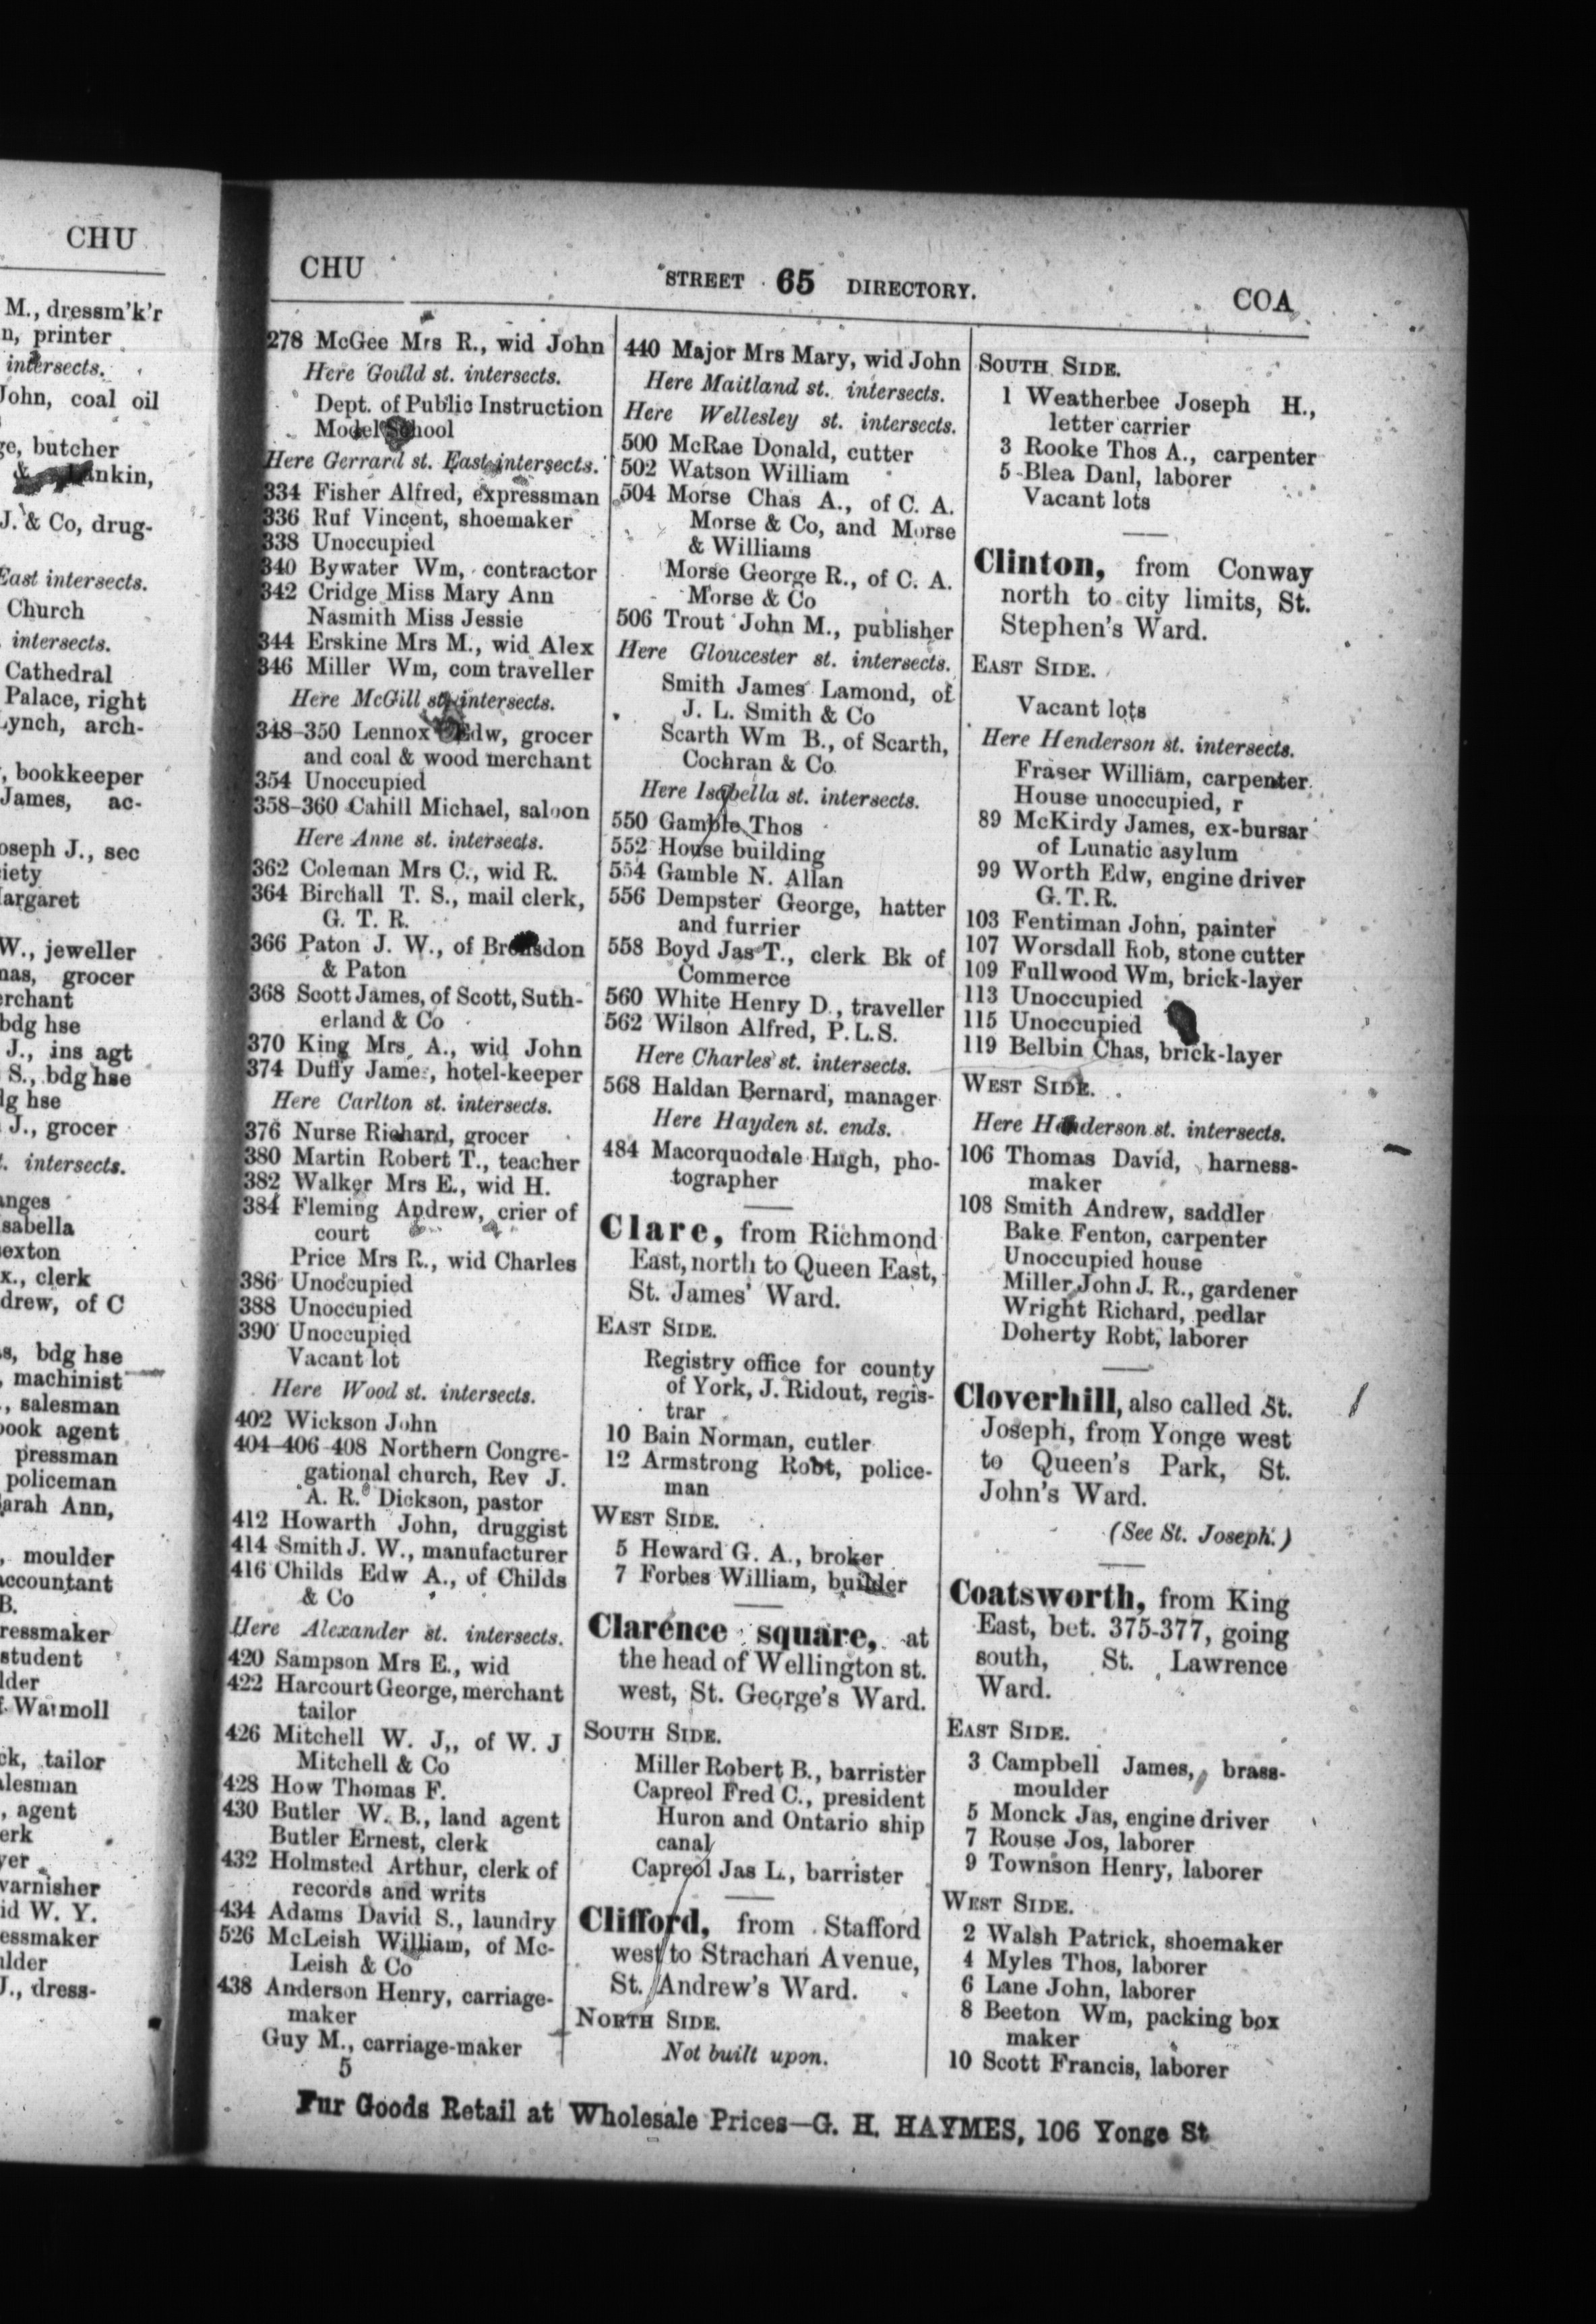 CHU
M., dressm'k'r
n, printer
intersects.
John, coal oil
ge, butcher
J. & Co, drug-
East intersects.
Church
intersects.
Cathedral
Palace, right
Lynch, arch-
, bookkeeper
James, ac-
oseph J., sec
iety
largaret
W., jeweller
nas, grocer
erchant
bdg hse
J., ins agt
S., bdg hse
lg hse
J., grocer
intersects.
anges
sabella
sexton
x., clerk
drew, of C
s, bdg hse
, machinist
., salesman
book agent
pressman
policeman
arah Ann,
, moulder
accountant
B.
ressmaker
student
lder
Waimoll
ck, tailor
alesman
, agent
erk
yer
varnisher
id W. Y.
essmaker
ulder
J., dress-
CHU STREET 65 DIRECTORY. COA
278 McGee Mrs R., wid John
Here Gould st. intersects.
Dept. of Public Instruction
Model School
Here Gerrard st. East intersects.
334 Fisher Alfred, expressman
336 Ruf Vincent, shoemaker
338 Unoccupied
340 Bywater Wm, contractor
342 Cridge Miss Mary Ann
Nasmith Miss Jessie
344 Erskine Mrs M., wid Alex
346 Miller Wm, com traveller
Here McGill st. intersects.
348-350 Lennox Edw, grocer
and coal & wood merchant
354 Unoccupied
358-360 Cahill Michael, saloon
Here Anne st. intersects.
362 Coleman Mrs C., wid R.
364 Birchall T. S., mail clerk,
G. T. R.
366 Paton J. W., of
& Paton
368 Scott James, of Scott, Suth-
erland & Co
370 King Mrs A., wid John
374 Duffy James, hotel-keeper
Here Carlton st. intersects.
376 Nurse Richard, grocer
380 Martin Robert T., teacher
382 Walker Mrs E., wid H.
384 Fleming Andrew, crier of
court
Price Mrs R., wid Charles
386 Unoccupied
388 Unoccupied
390 Unoccupied
Vacant lot
Here Wood st. intersects.
402 Wickson John
404-406-408 Northern Congre-
gational church, Rev J.
A. R. Dickson, pastor
412 Howarth John, druggist
414 Smith J. W., manufacturer
416 Childs Edw A., of Childs
& Co
Here Alexander st. intersects.
420 Sampson Mrs E., wid
422 Harcourt George, merchant
tailor
426 Mitchell W. J,, of W. J
Mitchell & Co
428 How Thomas F.
430 Butler W. B., land agent
Butler Ernest, clerk
432 Holmsted Arthur, clerk of
records and writs
434 Adams David S., laundry
526 McLeish William, of Mc-
Leish & Co
438 Anderson Henry, carriage-
maker
Guy M., carriage-maker
5
440 Major Mrs Mary, wid John
Here Maitland st. intersects.
Here Wellesley st. intersects.
500 McRae Donald, cutter
502 Watson William
504 Morse Chas A., of C. A.
Morse & Co, and Morse
& Williams
Morse George R., of C. A.
Morse & Co
506 Trout John M., publisher
Here Gloucester st. intersects.
Smith James Lamond, of
J. L. Smith & Co
Scarth Wm B., of Scarth,
Cochran & Co
Here Isabella st. intersects.
550 Gamble Thos
552 House building
554 Gamble N. Allan
556 Dempster George, hatter
and furrier
558 Boyd Jas T., clerk Bk of
Commerce
560 White Henry D., traveller
562 Wilson Alfred, P.L.S.
Here Charles st. intersects.
568 Haldan Bernard, manager
Here Hayden st. ends.
484 Macorquodale Hugh, pho-
tographer
Clare, from Richmond
East, north to Queen East,
St. James' Ward.
EAST SIDE.
Registry office for county
of York, J. Ridout, regis-
trar
10 Bain Norman, cutler
12 Armstrong Robt, police-
man
WEST SIDE.
5 Heward G. A., broker
7 Forbes William, builder
Clarence square, at
the head of Wellington st.
west, St. George's Ward.
SOUTH SIDE.
Miller Robert B., barrister
Capreol Fred C., president
Huron and Ontario ship
canal
Capreol Jas L., barrister
Clifford, from Stafford
west to Strachan Avenue,
St. Andrew's Ward.
NORTH SIDE.
Not built upon.
SOUTH SIDE.
1 Weatherbee Joseph H.,
letter carrier
3 Rooke Thos A., carpenter
5 Blea Danl, laborer
Vacant lots
Clinton, from Conway
north to city limits, St.
Stephen's Ward.
EAST SIDE.
Vacant lots
Here Henderson st. intersects.
Fraser William, carpenter
House unoccupied, r
89 McKirdy James, ex-bursar
of Lunatic asylum
99 Worth Edw, engine driver
G.T.R.
103 Fentiman John, painter
107 Worsdall Rob, stone cutter
109 Fullwood Wm, brick-layer
113 Unoccupied
115 Unoccupied
119 Belbin Chas, brick-layer
WEST SIDE.
Here Henderson st. intersects.
106 Thomas David, harness-
maker
108 Smith Andrew, saddler
Bake Fenton, carpenter
Unoccupied house
Miller John J. R., gardener
Wright Richard, pedlar
Doherty Robt, laborer
Cloverhill, also called St.
Joseph, from Yonge west
to Queen's Park, St.
John's Ward.
(See St. Joseph.)
Coatsworth, from King
East, bet. 375-377, going
south, St. Lawrence
Ward.
EAST SIDE.
3 Campbell James, brass-
moulder
5 Monck Jas, engine driver
7 Rouse Jos, laborer
9 Townson Henry, laborer
WEST SIDE.
2 Walsh Patrick, shoemaker
4 Myles Thos, laborer
6 Lane John, laborer
8 Beeton Wm, packing box
maker
10 Scott Francis, laborer
Fur Goods Retail at Wholesale Prices—G. H. HAYMES, 106 Yonge St